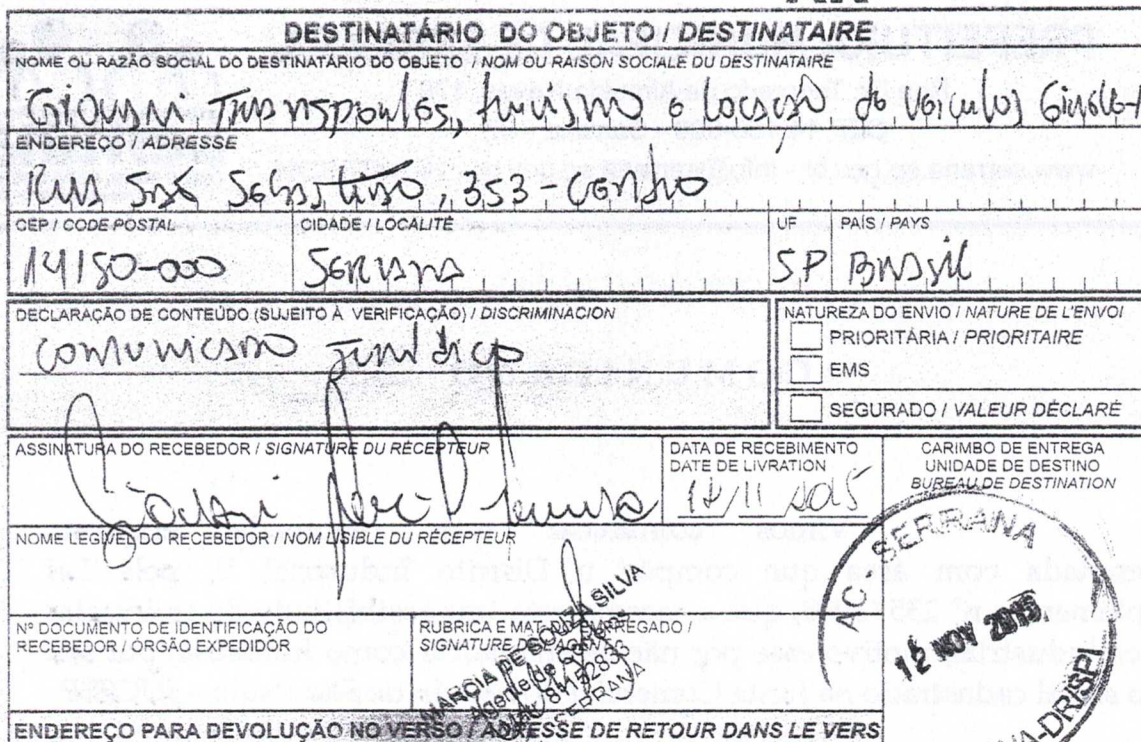 DESTINATÁRIO DO OBJETO / DESTINATAIRE
NOME OU RAZÃO SOCIAL DO DESTINATÁRIO DO OBJETO / NOM OU RAISON SOCIALE DU DESTINATAIRE
Transportes, turismo e locação de veículos
ENDEREÇO / ADRESSE
Rua São Sebastião, 353 - centro
CEP / CODE POSTAL CIDADE / LOCALITÉ UF PAÍS / PAYS
14150-000 Serrana SP Brasil
DECLARAÇÃO DE CONTEÚDO (SUJEITO À VERIFICAÇÃO) / DISCRIMINACION
comunicado Jurídico
NATUREZA DO ENVIO / NATURE DE L'ENVOI
PRIORITÁRIA / PRIORITAIRE
EMS
SEGURADO / VALEUR DÉCLARÉ
ASSINATURA DO RECEBEDOR / SIGNATURE DU RÉCEPTEUR
DATA DE RECEBIMENTO
DATE DE LIVRATION
12/11/2015
CARIMBO DE ENTREGA
UNIDADE DE DESTINO
BUREAU DE DESTINATION
NOME LEGÍVEL DO RECEBEDOR / NOM LISIBLE DU RÉCEPTEUR
Nº DOCUMENTO DE IDENTIFICAÇÃO DO
RECEBEDOR / ÓRGÃO EXPEDIDOR
RUBRICA E MAT. DO EMPREGADO /
SIGNATURE DE L'AGENT
MARCIA DE SOUZA SILVA
SERRANA
AC SERRANA
12 NOV 2015
ENDEREÇO PARA DEVOLUÇÃO NO VERSO / ADRESSE DE RETOUR DANS LE VERS